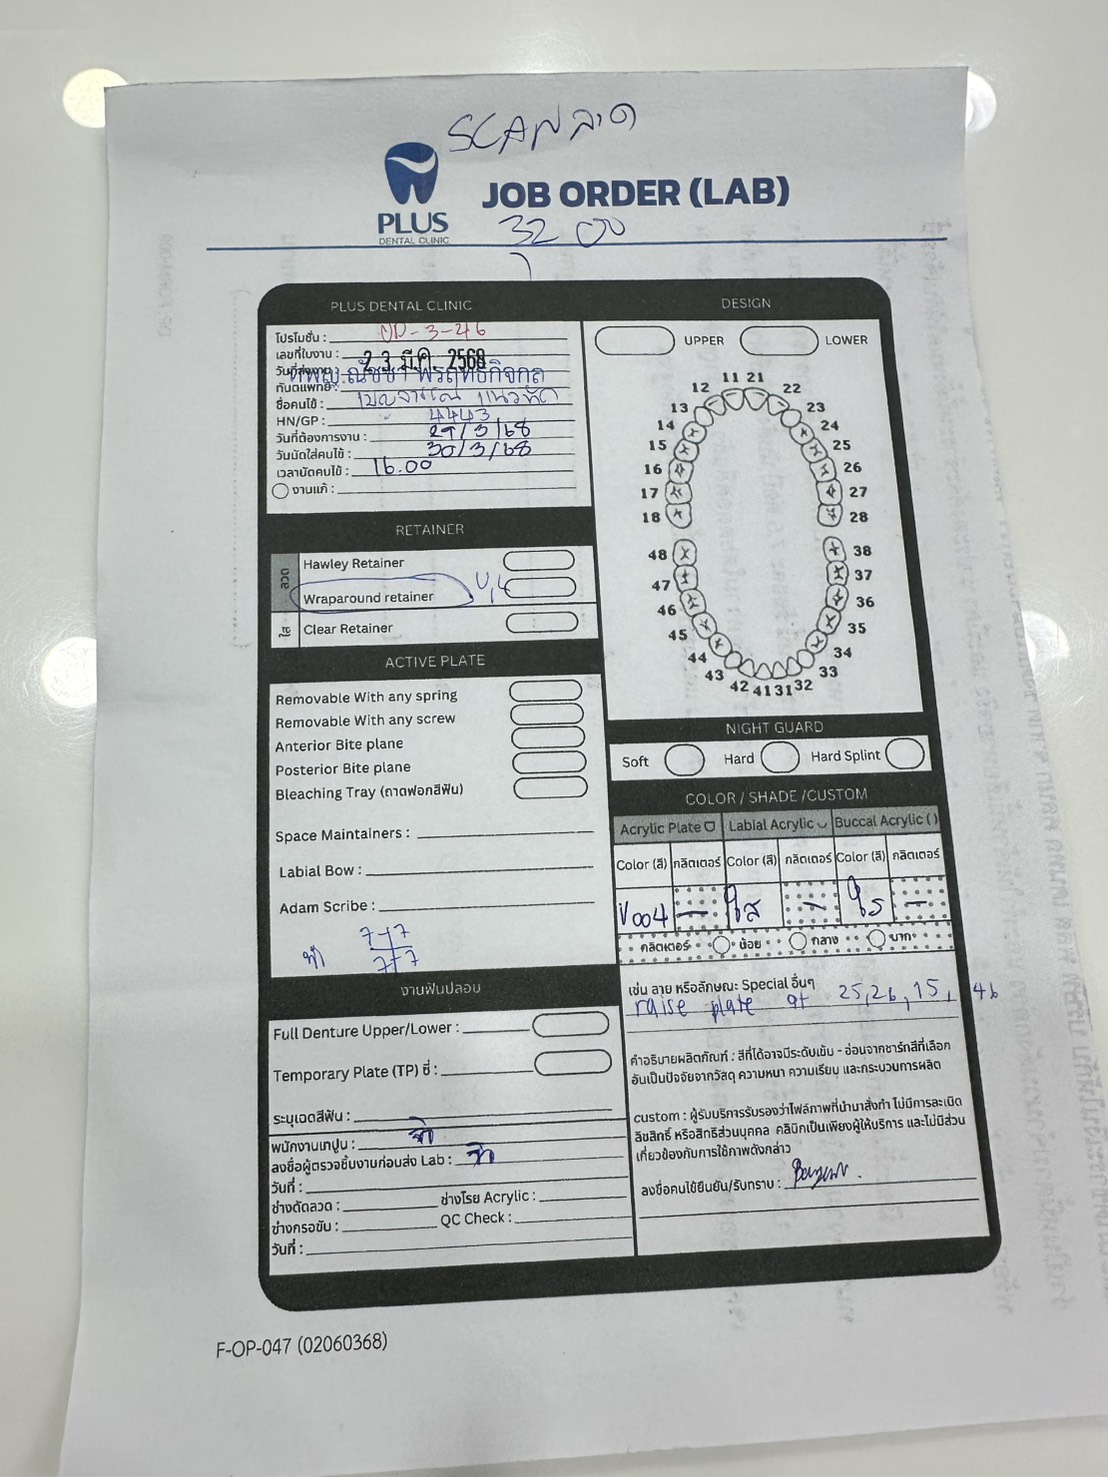 SCAN ลวด
PLUS
DENTAL CLINIC
JOB ORDER (LAB)
3200
PLUS DENTAL CLINIC
โปรโมชั่น : OP-3-46
เลขที่ใบงาน :
วันที่ส่งงาน : 23 มี.ค. 2568
ทันตแพทย์ : ทพญ.ณัชชา
ชื่อคนไข้ :
HN/GP : 4443
วันที่ต้องการงาน : 29/3/68
วันนัดใส่คนไข้ : 30/3/68
เวลานัดคนไข้ : 16.00
งานแก้ :
RETAINER
ลวด
Hawley Retainer
Wraparound retainer U,L
ใส
Clear Retainer
ACTIVE PLATE
Removable With any spring
Removable With any screw
Anterior Bite plane
Posterior Bite plane
Bleaching Tray (ถาดฟอกสีฟัน)
Space Maintainers :
Labial Bow :
Adam Scribe :
7-7
7-7
งานฟันปลอม
Full Denture Upper/Lower :
Temporary Plate (TP) ซี่ :
ระบุเฉดสีฟัน :
พนักงานเทปูน :
ลงชื่อผู้ตรวจชิ้นงานก่อนส่ง Lab :
วันที่ :
ช่างดัดลวด : ช่างโรย Acrylic :
ช่างกรอขัด : QC Check :
วันที่ :
DESIGN
UPPER LOWER
11 21
12 22
13 23
14 24
15 25
16 26
17 27
18 28
48 38
47 37
46 36
45 35
44 34
43 33
42 41 31 32
NIGHT GUARD
Soft Hard Hard Splint
COLOR / SHADE /CUSTOM
Acrylic Plate Labial Acrylic Buccal Acrylic ( )
Color (สี) กลิตเตอร์ Color (สี) กลิตเตอร์ Color (สี) กลิตเตอร์
V004 — ใส — ใส —
กลิตเตอร์ น้อย กลาง มาก
เช่น ลาย หรือลักษณะ Special อื่นๆ
raise plate at 25,26,15, 46
คำอธิบายผลิตภัณฑ์ : สีที่ได้อาจมีระดับเข้ม - อ่อนจากชาร์ทสีที่เลือก
อันเป็นปัจจัยจากวัสดุ ความหนา ความเรียบ และกระบวนการผลิต
custom : ผู้รับบริการรับรองว่าไฟล์ภาพที่นำมาสั่งทำ ไม่มีการละเมิด
ลิขสิทธิ์ หรือสิทธิส่วนบุคคล คลินิกเป็นเพียงผู้ให้บริการ และไม่มีส่วน
เกี่ยวข้องกับการใช้ภาพดังกล่าว
ลงชื่อคนไข้ยืนยัน/รับทราบ :
F-OP-047 (02060368)